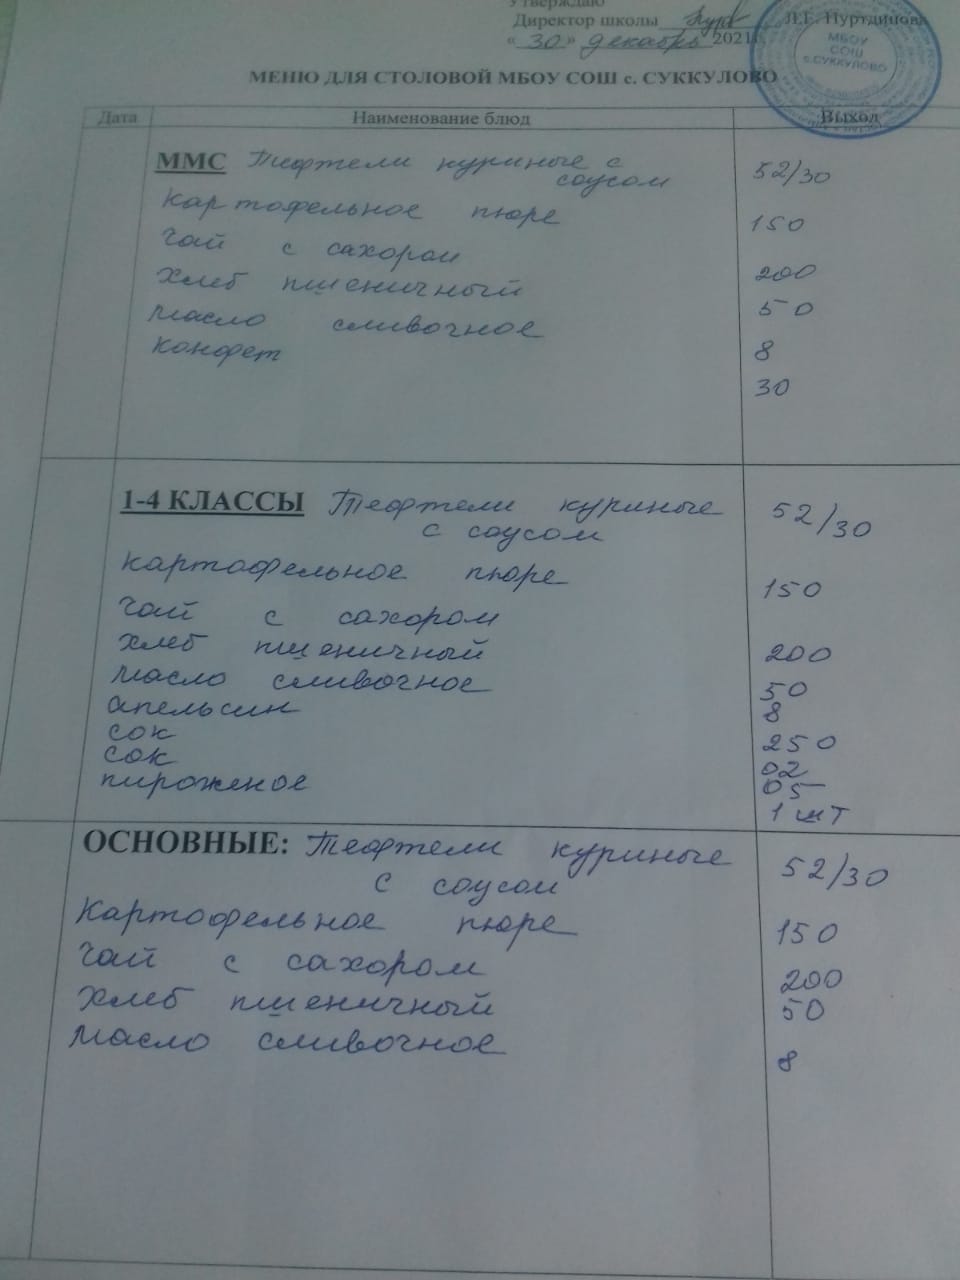 Утверждаю
Директор школы Л.Г. Нуртдинова
« 30 » декабрь 2021г
МБОУ
СОШ
с.СУККУЛОВО
МЕНЮ ДЛЯ СТОЛОВОЙ МБОУ СОШ с. СУККУЛОВО
Дата Наименование блюд Выход
ММС Тефтели куриные с 52/30
соусом
Картофельное пюре 150
Чай с сахором 200
Хлеб пшеничный 50
Масло сливочное 8
конфет 30
1-4 КЛАССЫ Тефтели куриные 52/30
с соусом
картофельное пюре 150
Чай с сахором 200
Хлеб пшеничный 50
Масло сливочное 8
апельсин 250
сок 02
сок 05
пироженое 1 шт
ОСНОВНЫЕ: Тефтели куриные 52/30
с соусом
Картофельное пюре 150
Чай с сахором 200
Хлеб пшеничный 50
Масло сливочное 8